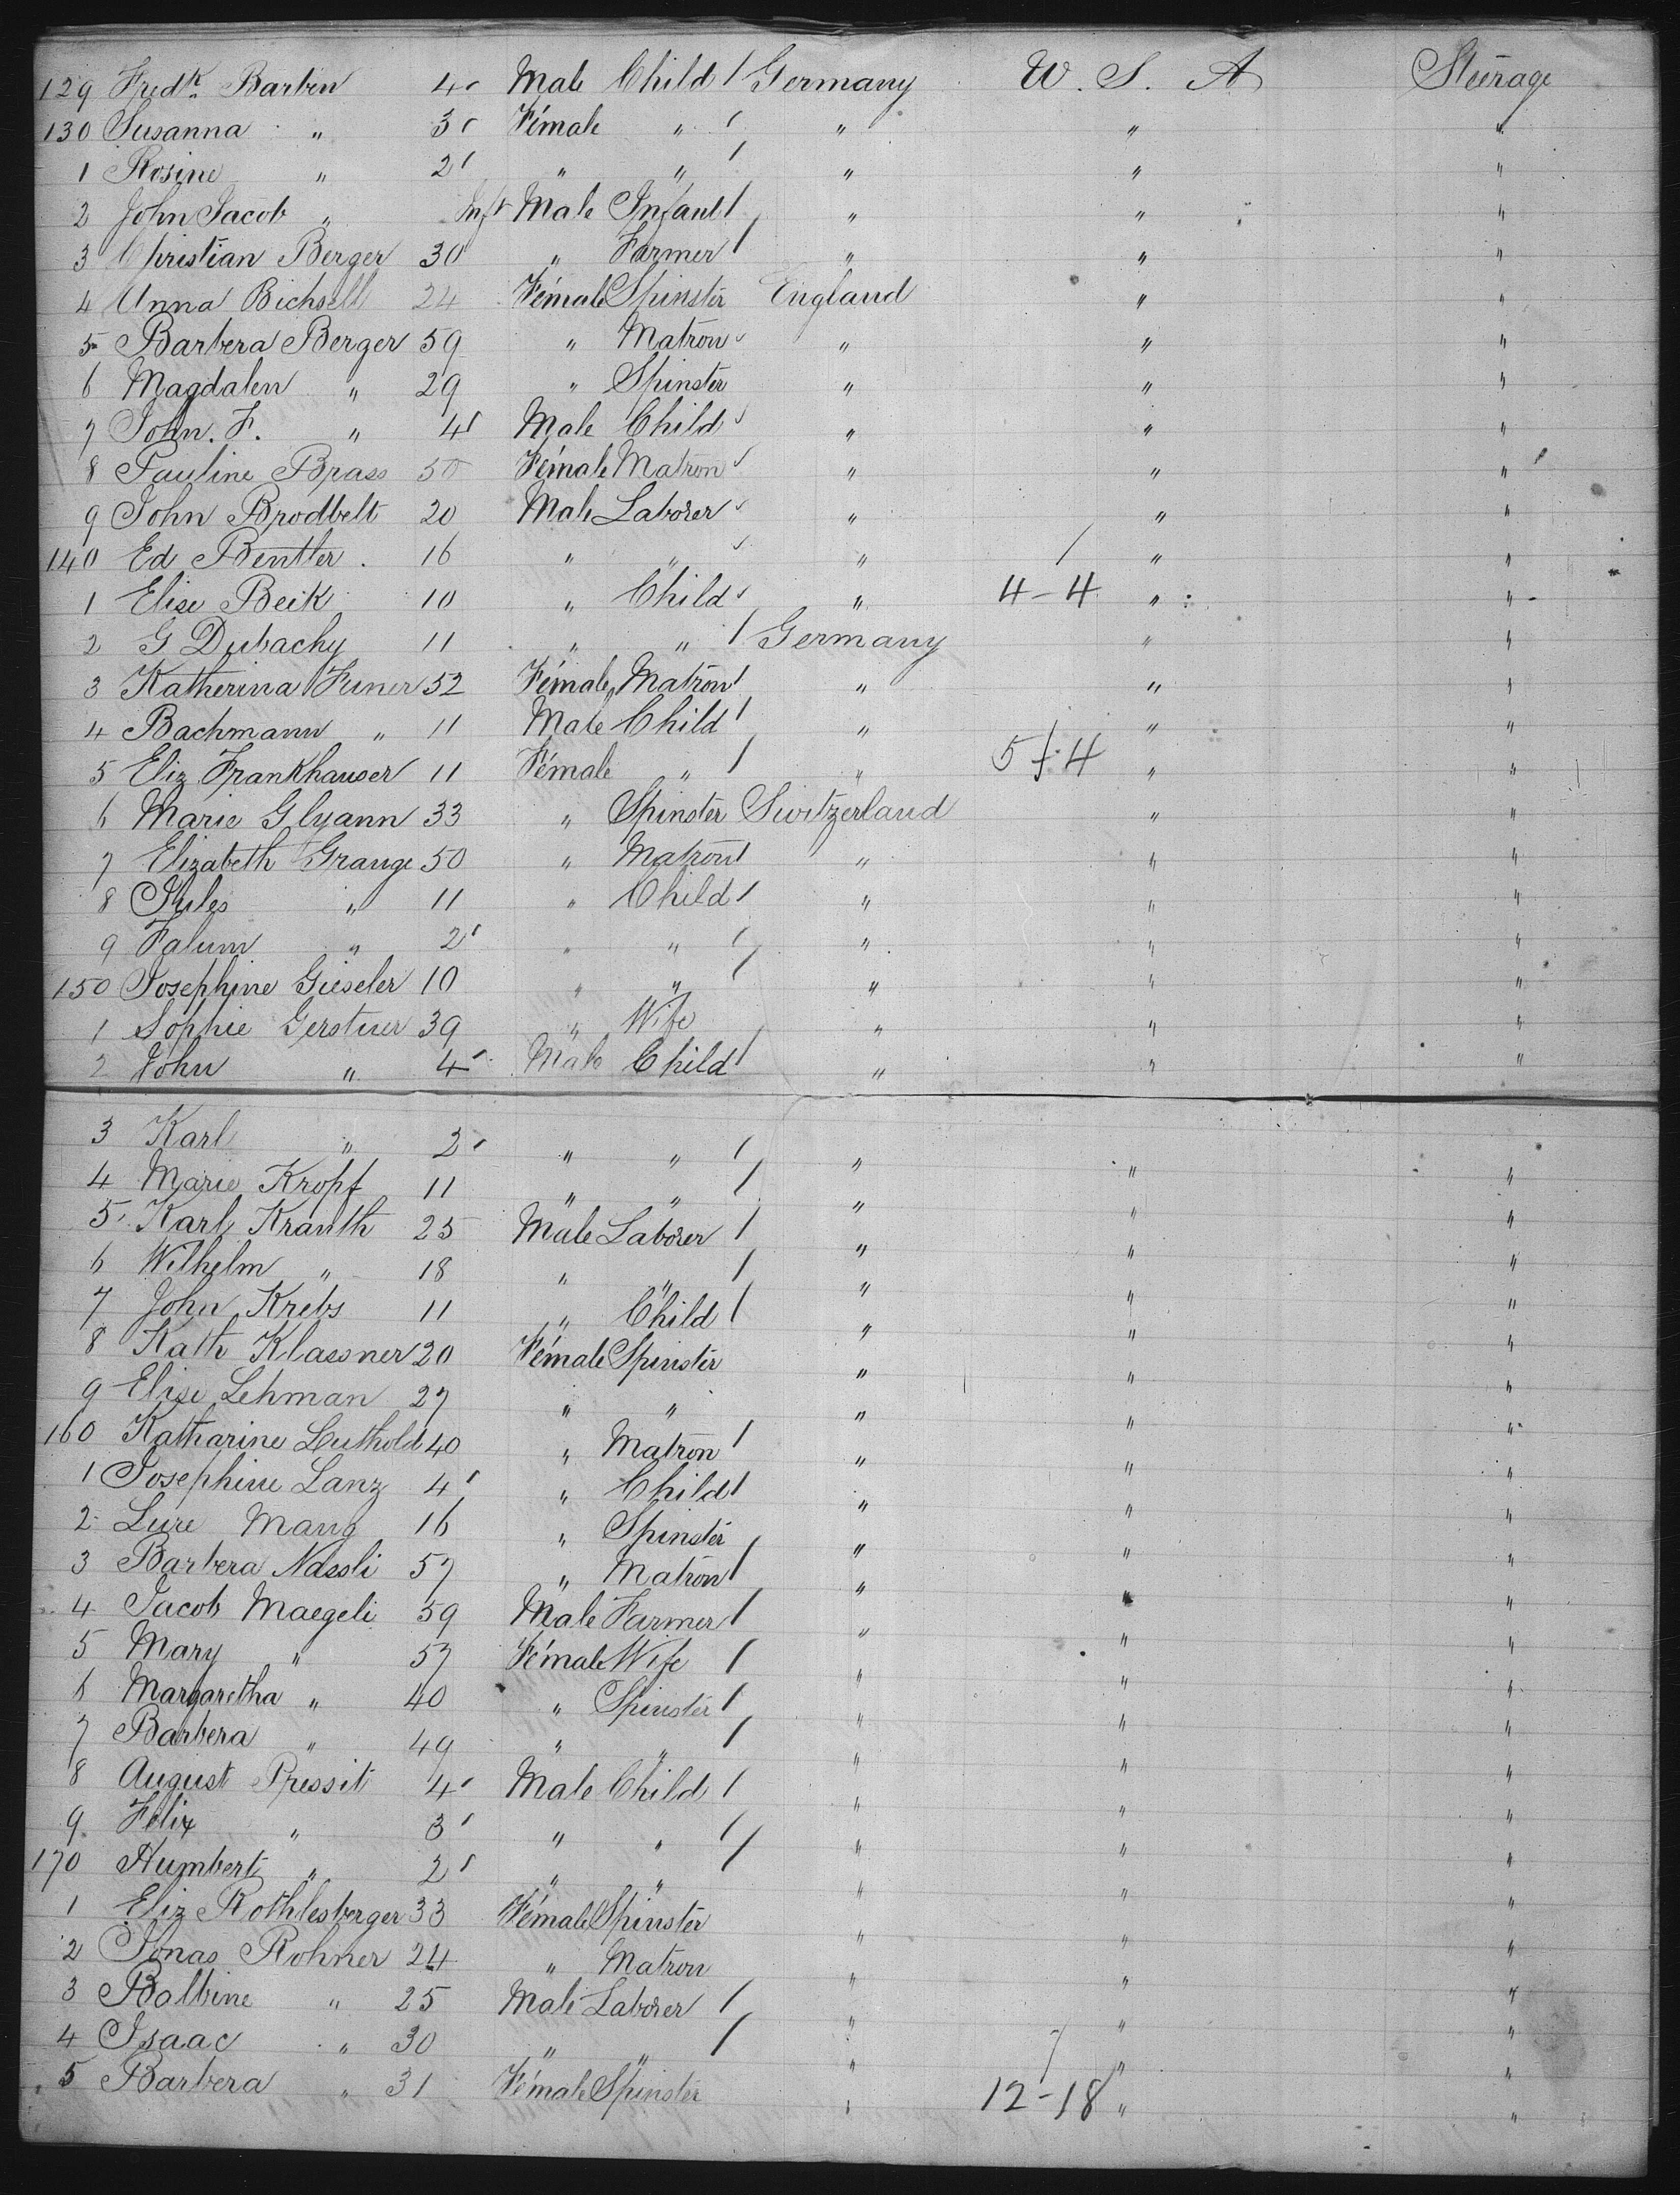 129 Fredk. Barben 4 Male Child / Germany U. S. A Steerage
130 Susanna " 3 Female " / " " "
1 Rosine " 2 " " / " " "
2 John Jacob " Inft Male Infant / " " "
3 Christian Berger 30 " Farmer / " " "
4 Anna Bichsell 24 Female Spinster England " "
5 Barbera Berger 59 " Matron " " "
6 Magdalen " 29 " Spinster " " "
7 John. F. " 4 Male Child " " "
8 Pauline Brass 50 Female Matron " " "
9 John Brodbelt 20 Male Laborer " " "
140 Ed Bentler . 16 " " " / " "
1 Elise Beik 10 " Child " 4-4 " "
2 G Dubachy 11 " " / Germany " "
3 Katherina Funer 52 Female Matron / " " "
4 Bachmann " 11 Male Child / " " "
5 Eliz Frankhauser 11 Female " / " 5-4 " "
6 Marie Glyann 33 " Spinster Switzerland " "
7 Elizabeth Grange 50 " Matron / " " "
8 Jules " 11 " Child / " " "
9 Falum " 2 " " / " " "
150 Josephine Gieseler 10 " " / " " "
1 Sophie Gerstner 39 " Wife " " "
2 John " 4 Male Child / " " "
3 Karl " 2 " " / " " "
4 Marie Kropf 11 " " / " " "
5 Karl Kranth 25 Male Laborer / " " "
6 Wilhelm " 18 " " / " " "
7 John Krebs 11 " Child / " " "
8 Kath Klassner 20 Female Spinster " " "
9 Elise Lehman 27 " " " " "
160 Katharine Luthold 40 " Matron / " " "
1 Josephine Lanz 4 " Child / " " "
2 Lure Mang 16 " Spinster " " "
3 Barbera Nassli 57 " Matron / " " "
4 Jacob Maegeli 59 Male Farmer / " " "
5 Mary " 57 Female Wife / " " "
6 Margaretha " 40 " Spinster / " " "
7 Barbera " 49 " " / " " "
8 August Pressit 4 Male Child / " " "
9 Felix " 3 " " / " " "
170 Humbert " 2 " " / " " "
1 Eliz Rothlesberger 33 Female Spinster " " "
2 Jonas Rohner 24 " Matron " " "
3 Balbine " 25 Male Laborer / " " "
4 Isaac " 30 " " / " " "
5 Barbera " 31 Female Spinster " 12-18 " "